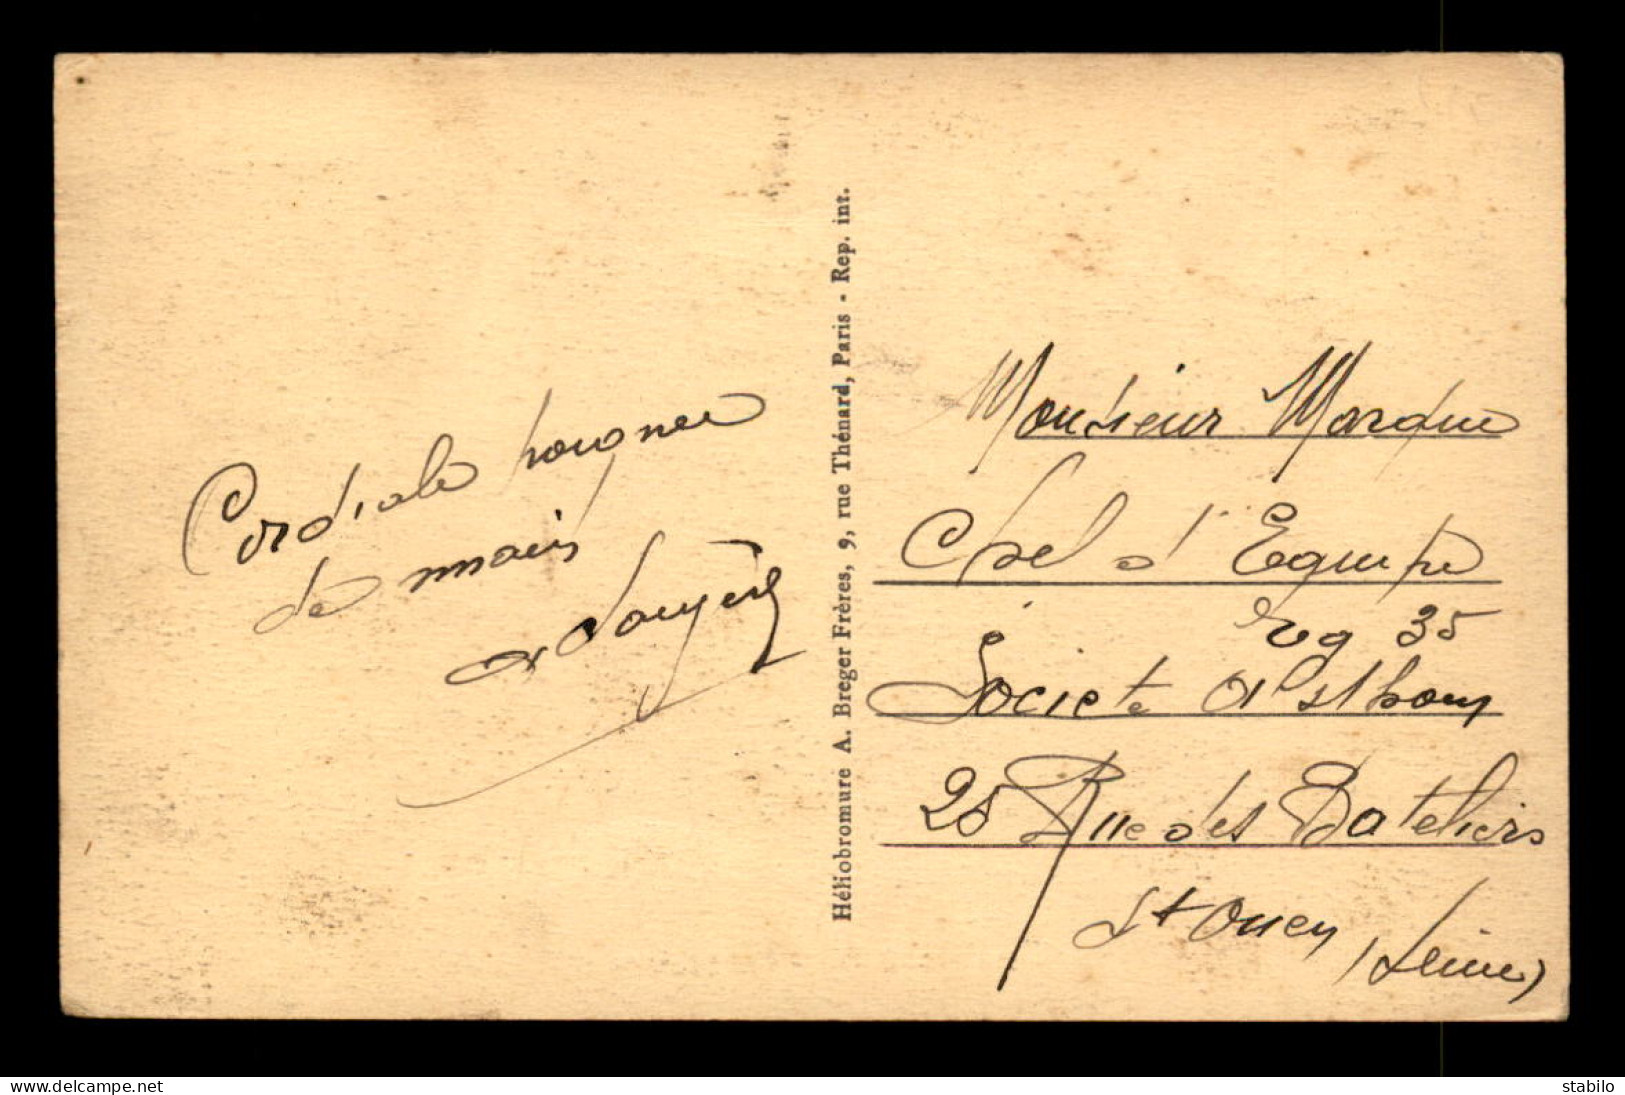 Cordiale poignee
de main
Héliobromure A. Breger Frères, 9, rue Thénard, Paris - Rep. int.
Monsieur Marque
Chef d'Equipe
Eq 35
Société Alsthom
25 Rue des Bateliers
St Ouen (Seine)
www.delcampe.net
stabilo